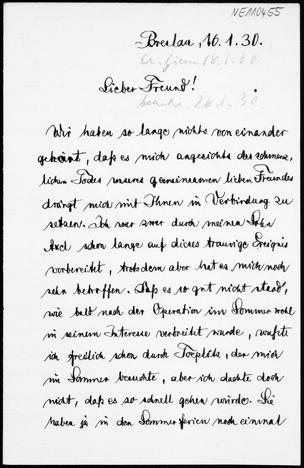 NE110455
Breslau, 16.1.30.
18.1.30.
Lieber Freund!
26.1.30.
Wir haben so lange nichts von einander
gehört, daß es mich angesichts des schmerz-
lichen Todes unseres gemeinsamen lieben Freundes
drängt mich mit Ihnen in Verbindung zu
setzen. Ich war zwar durch meinen Sohn
Axel schon lange auf dieses traurige Ereignis
vorbereitet, trotzdem aber hat es mich noch
sehr betroffen. Daß es so gut nicht stand,
wie bald nach der Operation im Sommer wohl
in seinem Interesse verbreitet wurde, wußte
ich freilich schon durch Toeplitz, der mich
im Sommer besuchte, aber ich dachte doch
nicht, daß es so schnell gehen würde. Sie
haben ja in den Sommerferien noch einmal